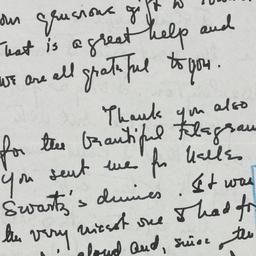 our generous gift to
That is a great help and
we are all grateful to you.
Thank you also
for the beautiful telegram
you sent me for
Swartz's dinner. It was
the very nicest one I had
and, since the